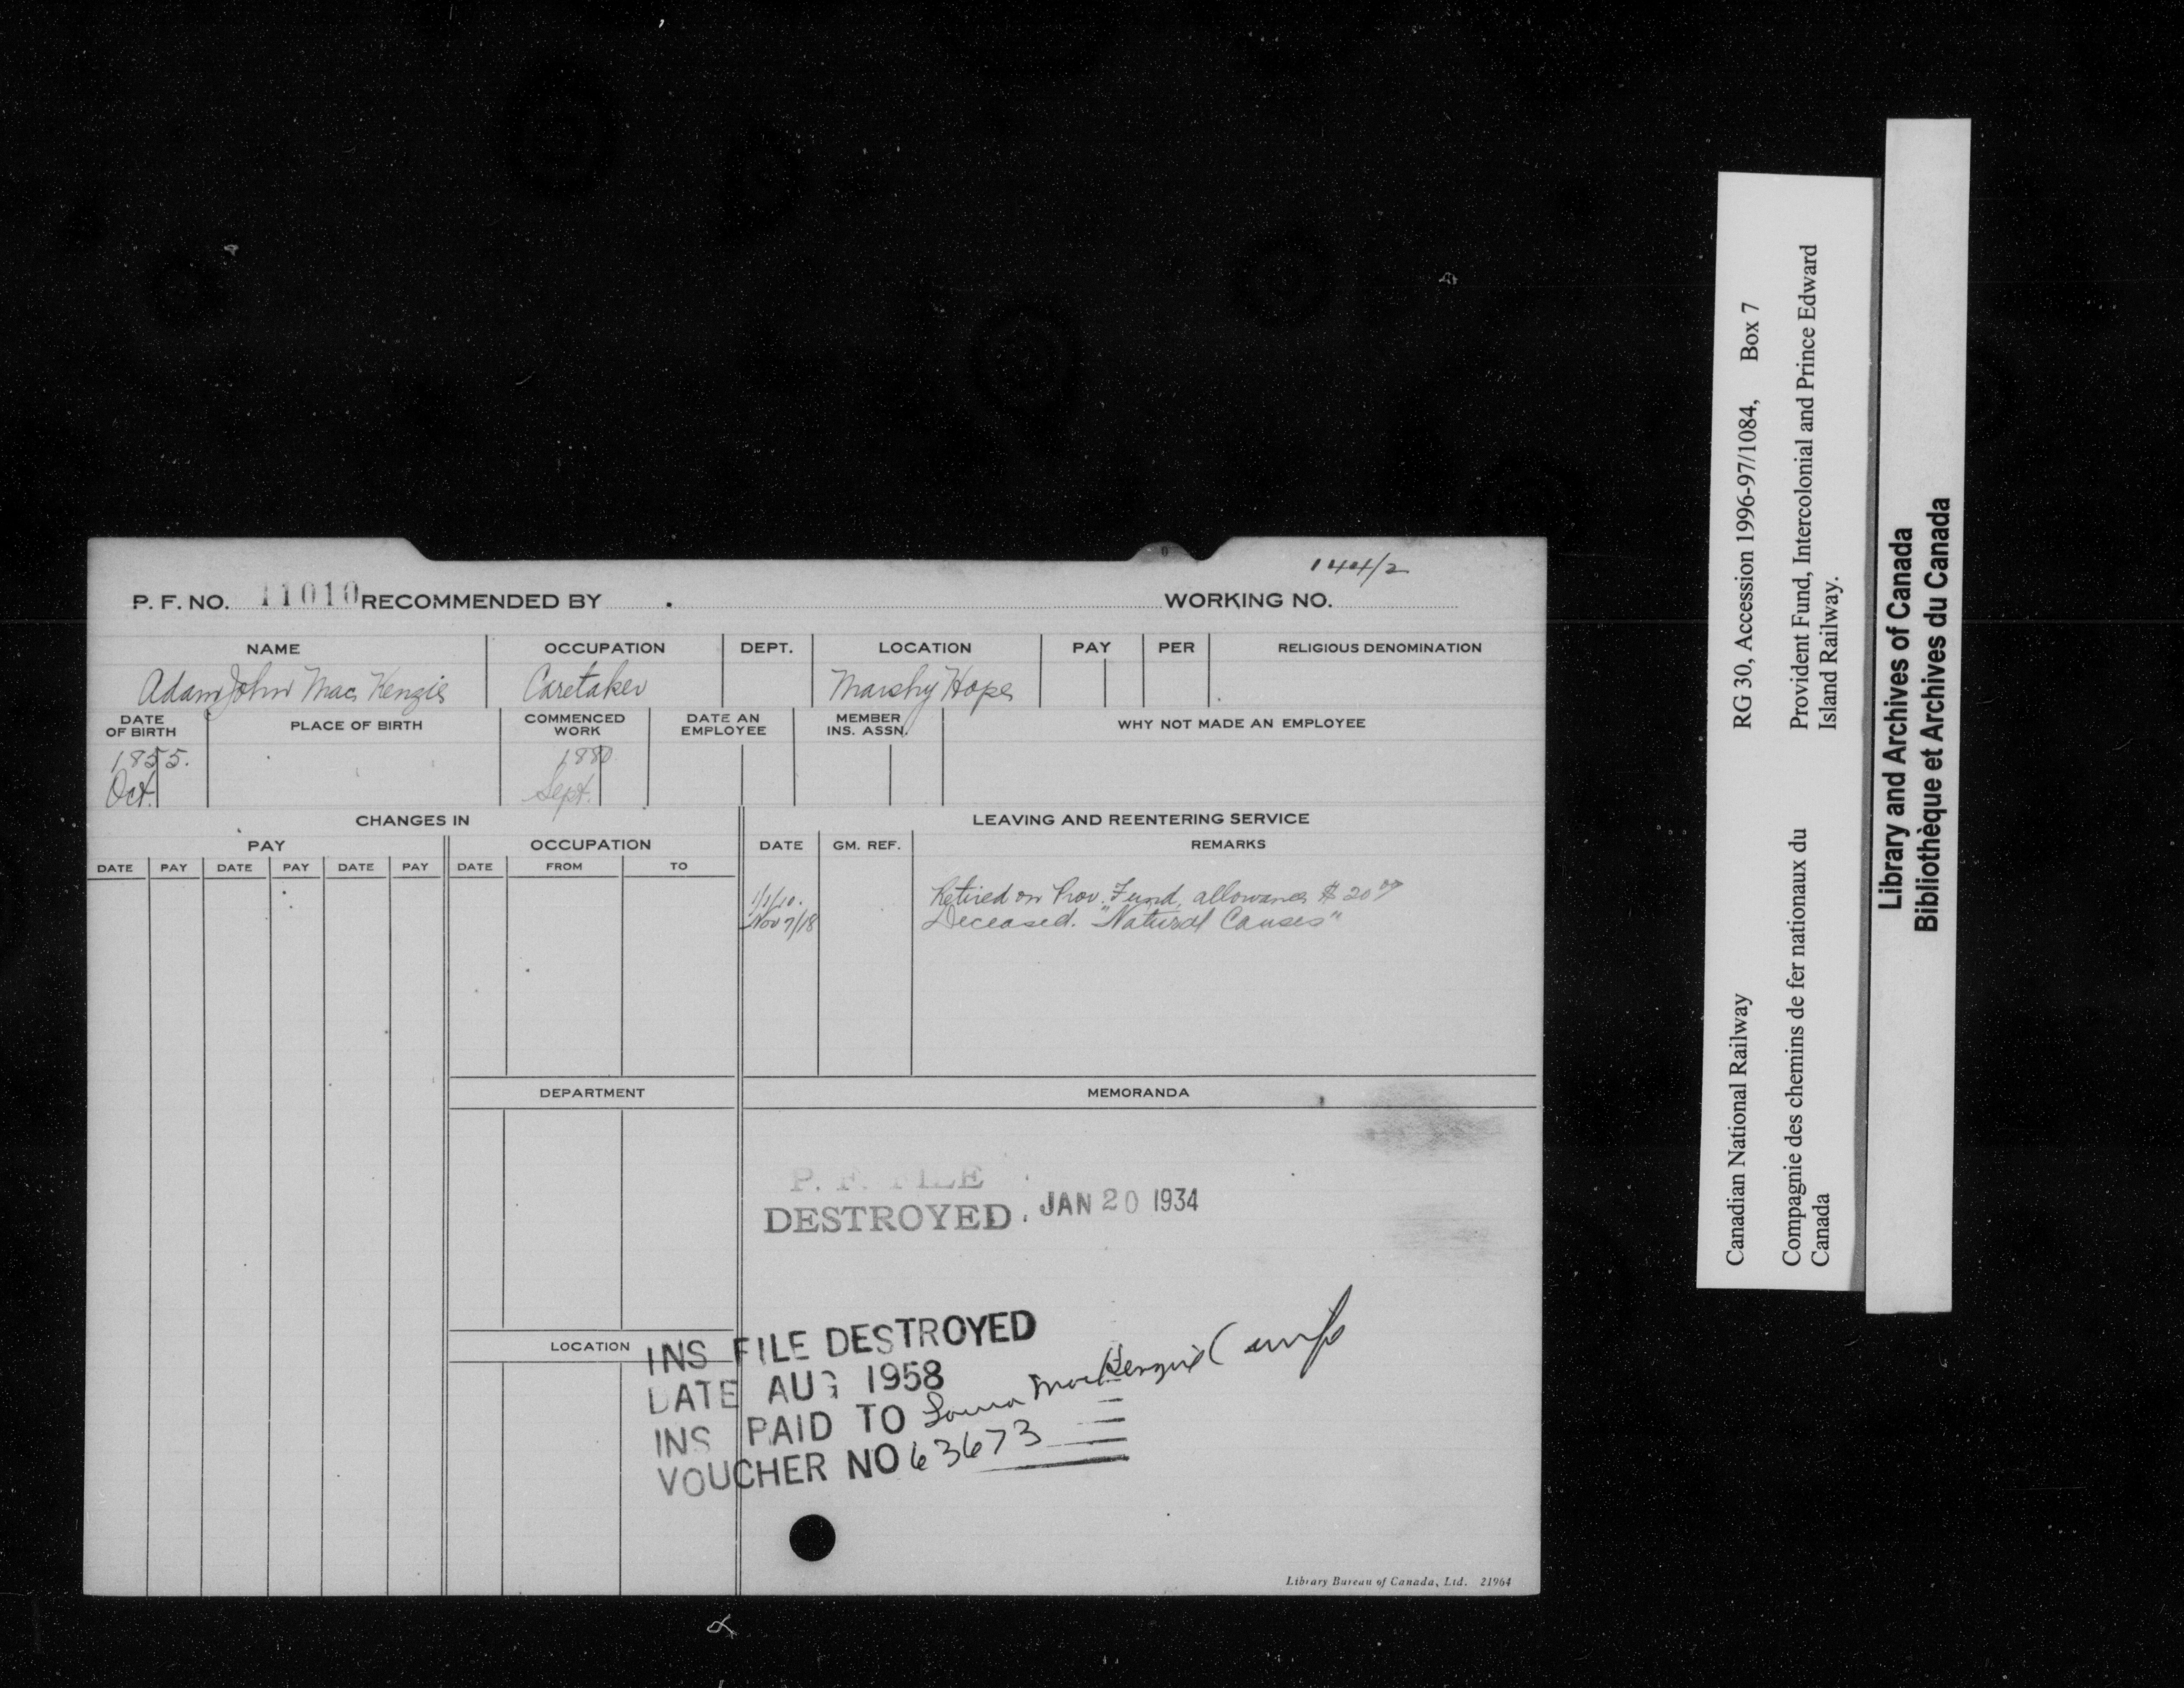 144/2
P. F. NO. 11010 RECOMMENDED BY WORKING NO.
NAME OCCUPATION DEPT. LOCATION PAY PER RELIGIOUS DENOMINATION
Adam John Mac Kenzie Caretaker Marshy Hope
DATE OF BIRTH PLACE OF BIRTH COMMENCED WORK DATE AN EMPLOYEE MEMBER INS. ASSN. WHY NOT MADE AN EMPLOYEE
1855. 1880
Oct. Sept.
CHANGES IN LEAVING AND REENTERING SERVICE
PAY OCCUPATION DATE GM. REF. REMARKS
DATE PAY DATE PAY DATE PAY DATE FROM TO
1/1/10. Retired on Prov. Fund, allowance $20.00
Nov 7/18 Deceased. "Natural Causes"
DEPARTMENT MEMORANDA
P. F. FILE
DESTROYED. JAN 20 1934
LOCATION
INS FILE DESTROYED
DATE AUG 1958
INS PAID TO Laura MacKenzie (wife
VOUCHER NO 63673
Library Bureau of Canada, Ltd. 21964
Canadian National Railway RG 30, Accession 1996-97/1084, Box 7
Compagnie des chemins de fer nationaux du Provident Fund, Intercolonial and Prince Edward
Canada Island Railway.
Library and Archives of Canada
Bibliothèque et Archives du Canada